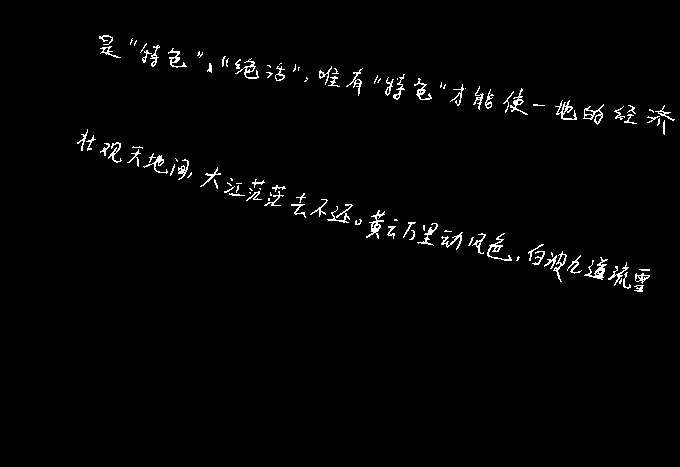 是“特色”、“绝活”，唯有“特色”才能使一地的经济
壮观天地间，大江茫茫去不还。黄云万里动风色，白波九道流雪